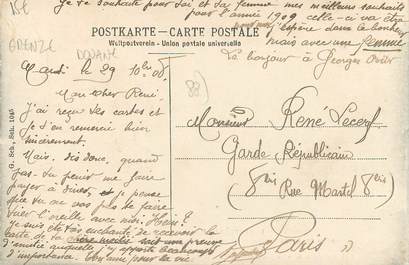 Je te souhaite pour toi et ta femme mes meilleurs souhaits
pour l'année 1909 celle-ci va être
j'espère dans le bonheur
mais avec une femme
Le bonjour à Georges
POSTKARTE — CARTE POSTALE
Weltpostverein - Union postale universelle
DOUANE
Mardi le 29 10bre 08
Mon cher René.
J'ai reçu tes cartes et
je t'en remercie bien
sincèrement.
Mais, dis donc, quand
vas-tu venir me faire
payer à dîner, et je pense
que tu ne vas plus te faire
tirer l'oreille avec moi. Hein?
Je suis très enchanté de recevoir la
carte de ta
d'amitié auquelle j'y apporte beaucoup
d'importance. Ton ami pour la vie
G. Sch. Seb. 1045
Monsieur René Lecerf
Garde Républicain
8bis Rue Martel 8bis
Paris